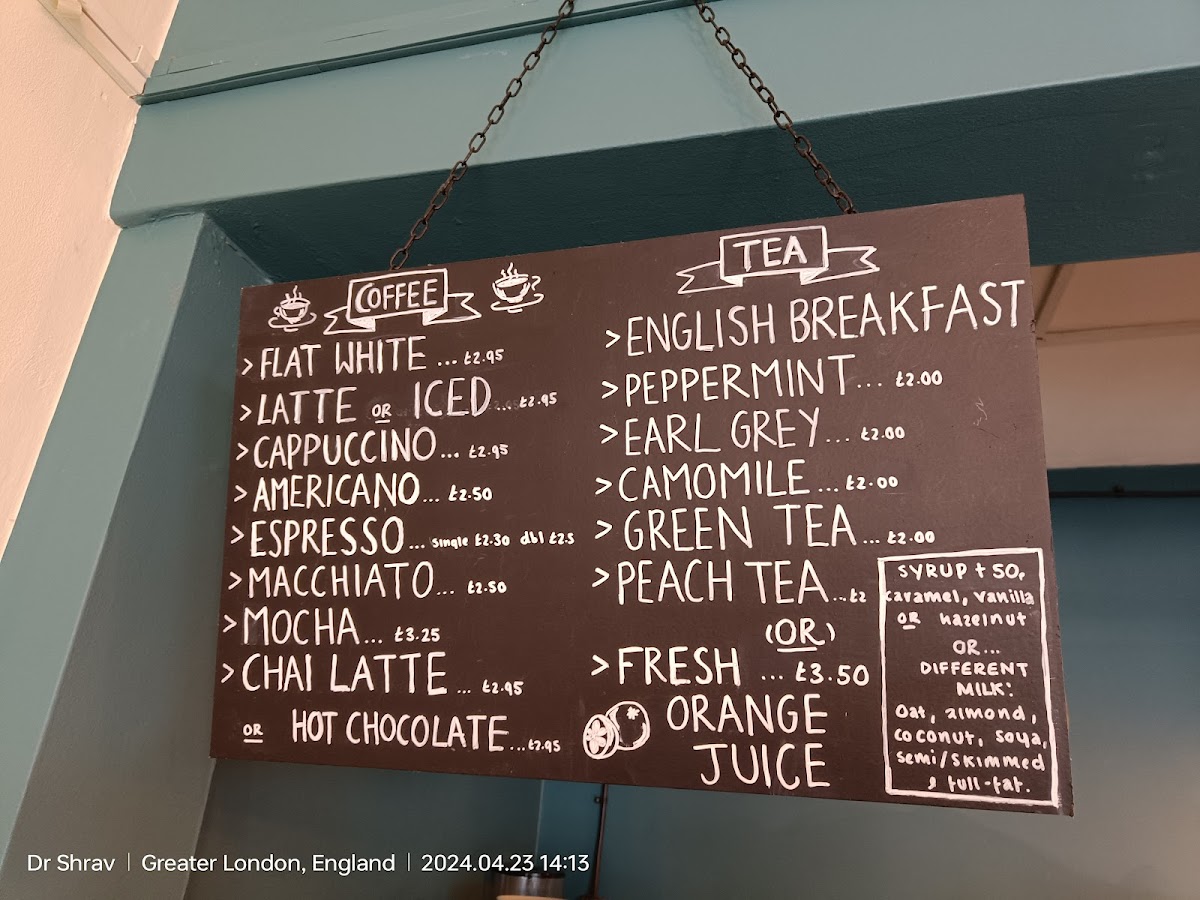 COFFEE
>FLAT WHITE ... £2.95
>LATTE OR ICED... £2.95
>CAPPUCCINO... £2.95
>AMERICANO... £2.50
>ESPRESSO... single £2.30 dbl £2.5
>MACCHIATO... £2.50
>MOCHA... £3.25
>CHAI LATTE ... £2.95
OR HOT CHOCOLATE...£2.95
TEA
>ENGLISH BREAKFAST
>PEPPERMINT... £2.00
>EARL GREY... £2.00
>CAMOMILE ... £2.00
>GREEN TEA... £2.00
>PEACH TEA...£2
(OR)
>FRESH ... £3.50
ORANGE
JUICE
SYRUP + 50p
caramel, vanilla
OR hazelnut
OR...
DIFFERENT
MILK:
Oat, almond,
coconut, soya,
semi/skimmed
& full-fat.
Dr Shrav | Greater London, England | 2024.04.23 14:13